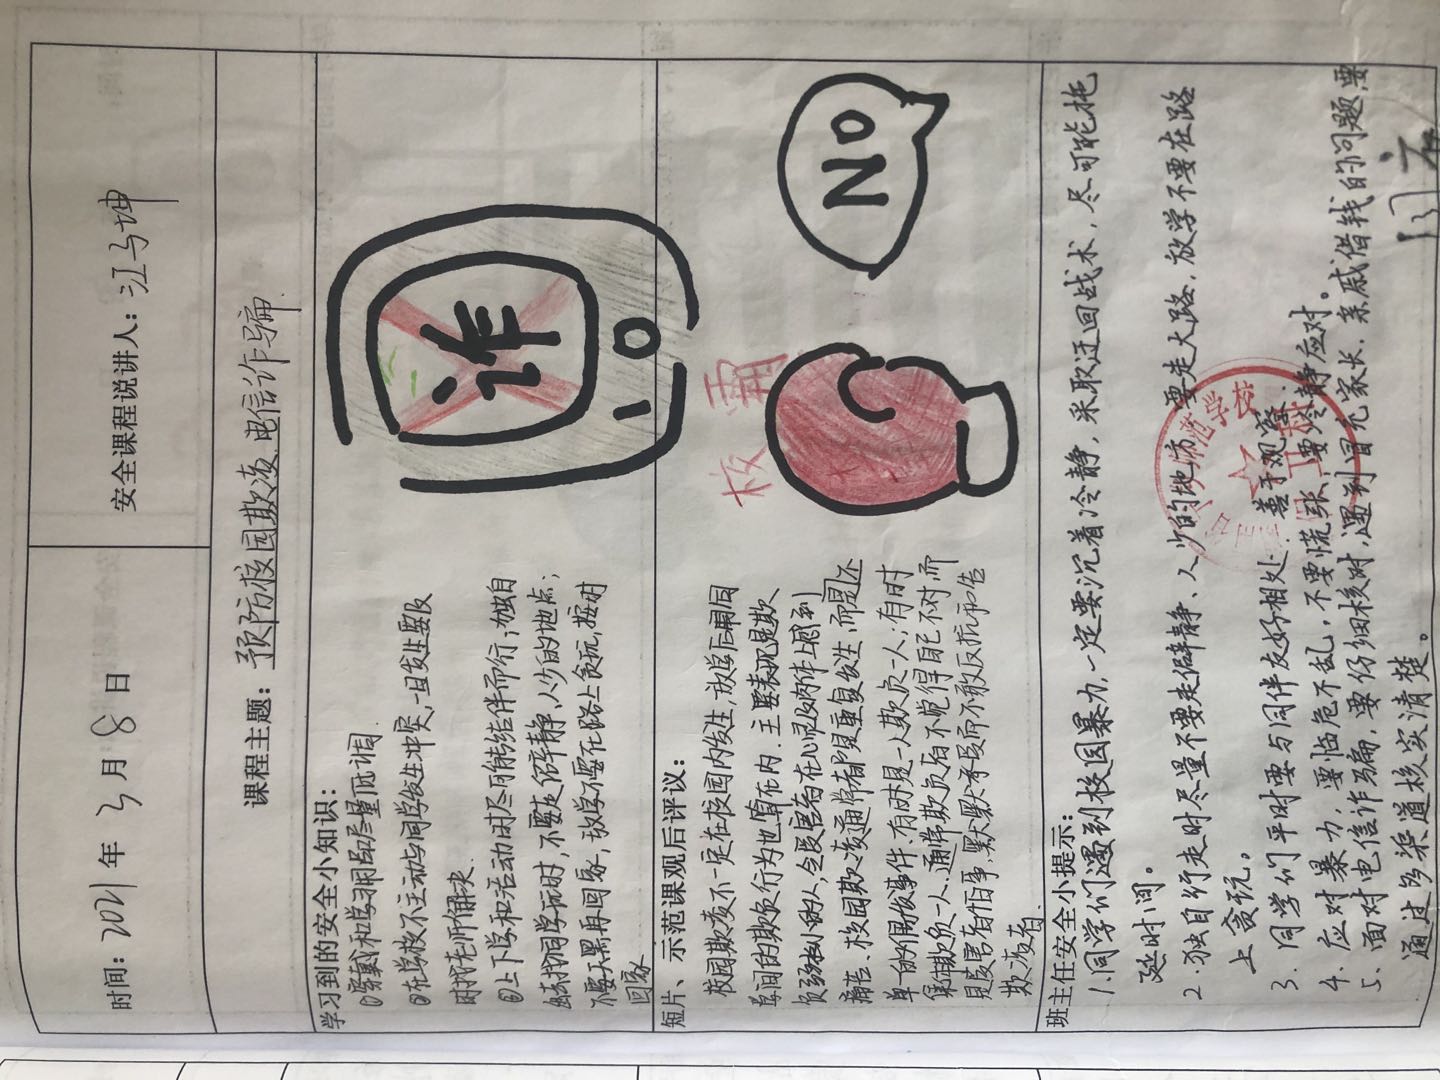 时间：2021 年 3 月 8 日
安全课程说讲人：江马坤
课程主题：预防校园欺凌、电信诈骗.
学习到的安全小知识：
①穿戴和学习用品尽量低调
②在学校不主动与同学发生冲突，一旦发生要及
时找老师解决
③上下学和活动时尽可能结伴而行；独自
出去找同学玩时，不要走僻静、人少的地点；
不要天黑再回家，放学不要在路上贪玩，按时
回家
诈
短片、示范课观后评议：
校园欺凌不一定在校园内发生，放学后同
学间的欺负行为也算在内.主要表现是欺
负弱小的人，令受害者在心灵及肉体上感到
痛苦、校园欺凌通常都是重复发生，而是还
单的偶发事件.有时是一人欺负一人；有时
集体欺负一人.通常欺负者不觉得自己不对，而
是受害者怕事，默默承受而不敢反抗和告
欺凌者
校霸
NO
班主任安全小提示：
1.同学们遇到校园暴力，一定要沉着冷静，采取迂回战术，尽可能拖
延时间。
2.独自行走时尽量不要走僻静、人少的地方，要走大路，放学不要在路
上贪玩。
3.同学们平时要与同伴友好相处，善于观察.
4.应对暴力，要临危不乱，不要慌张，要冷静应对。
5.面对电信诈骗，要仔细核对，遇到冒充家长、亲戚借钱的问题，要
通过多渠道核实清楚。
范学校